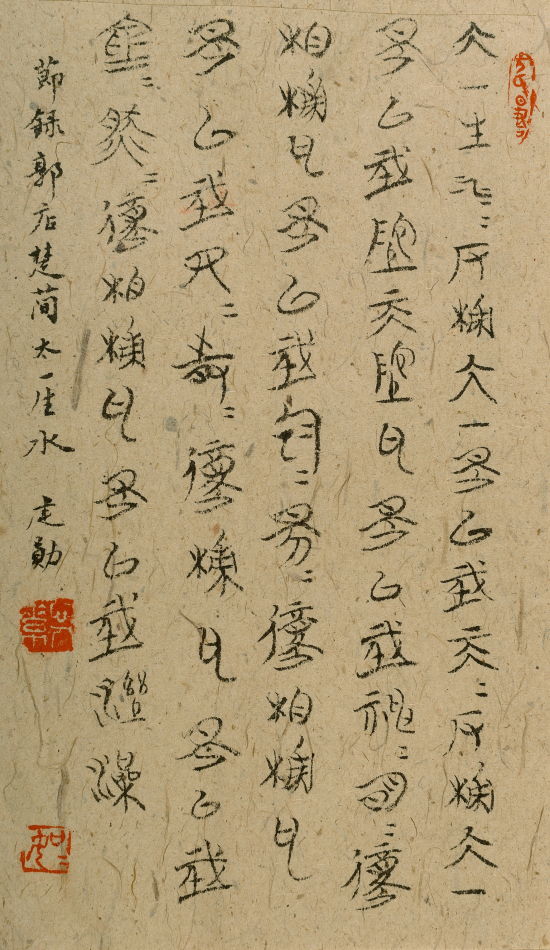 大一生水=反輔大一是以成天=反輔大一
是以成地天地也是以成神=明=復
相輔也是以成陰=陽=復相輔也
是以成四=時=復輔也是以成
倉=然=復相輔也是以成溼燥
節錄郭店楚簡太一生水 勛